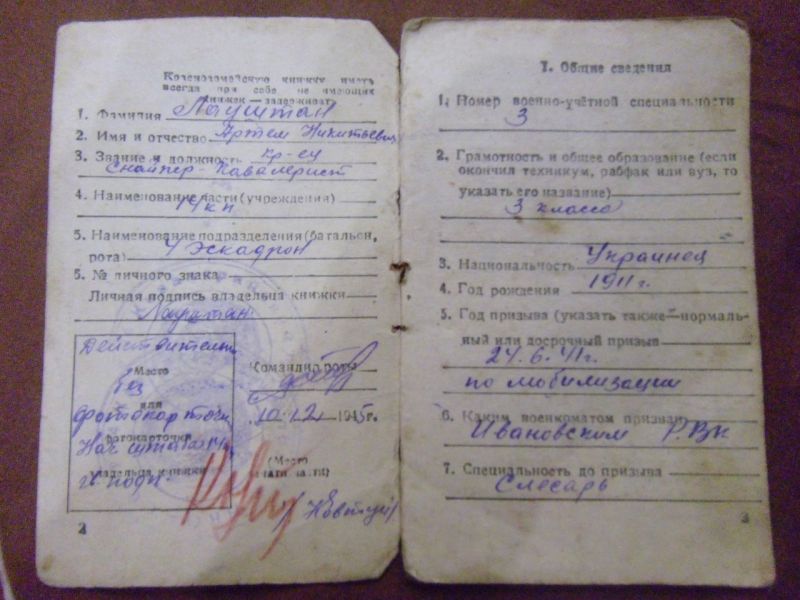 Красноармейскую книжку иметь
всегда при себе не имеющих
книжек — задерживать
1. Фамилия Лауштан
2. Имя и отчество Артем Никитьевич
3. Звание и должность кр-ец
Снайпер-Кавалерист
4. Наименование части (учреждения)
14 кп
5. Наименование подразделения (батальон,
рота) 4 Эскадрон
5. № личного знака
Личная подпись владельца книжки
Лауштан
Действительно
Место
без
или
фотокарточки
фотокарточки
Нач штаба 14
владельца книжки
Командир роты
10.12 1945г.
(Место
печати части)
2
I. Общие сведения
1. Номер военно-учётной специальности
3
2. Грамотность и общее образование (если
окончил техникум, рабфак или вуз, то
указать его название)
3 класса
3. Национальность Украинец
4. Год рождения 1911 г.
5. Год призыва (указать также — нормаль-
ный или досрочный призыв
24.6.41г.
по мобилизации
6. Каким военкоматом призван
Ивановским Р.Вк
7. Специальность до призыва
Слесарь
3